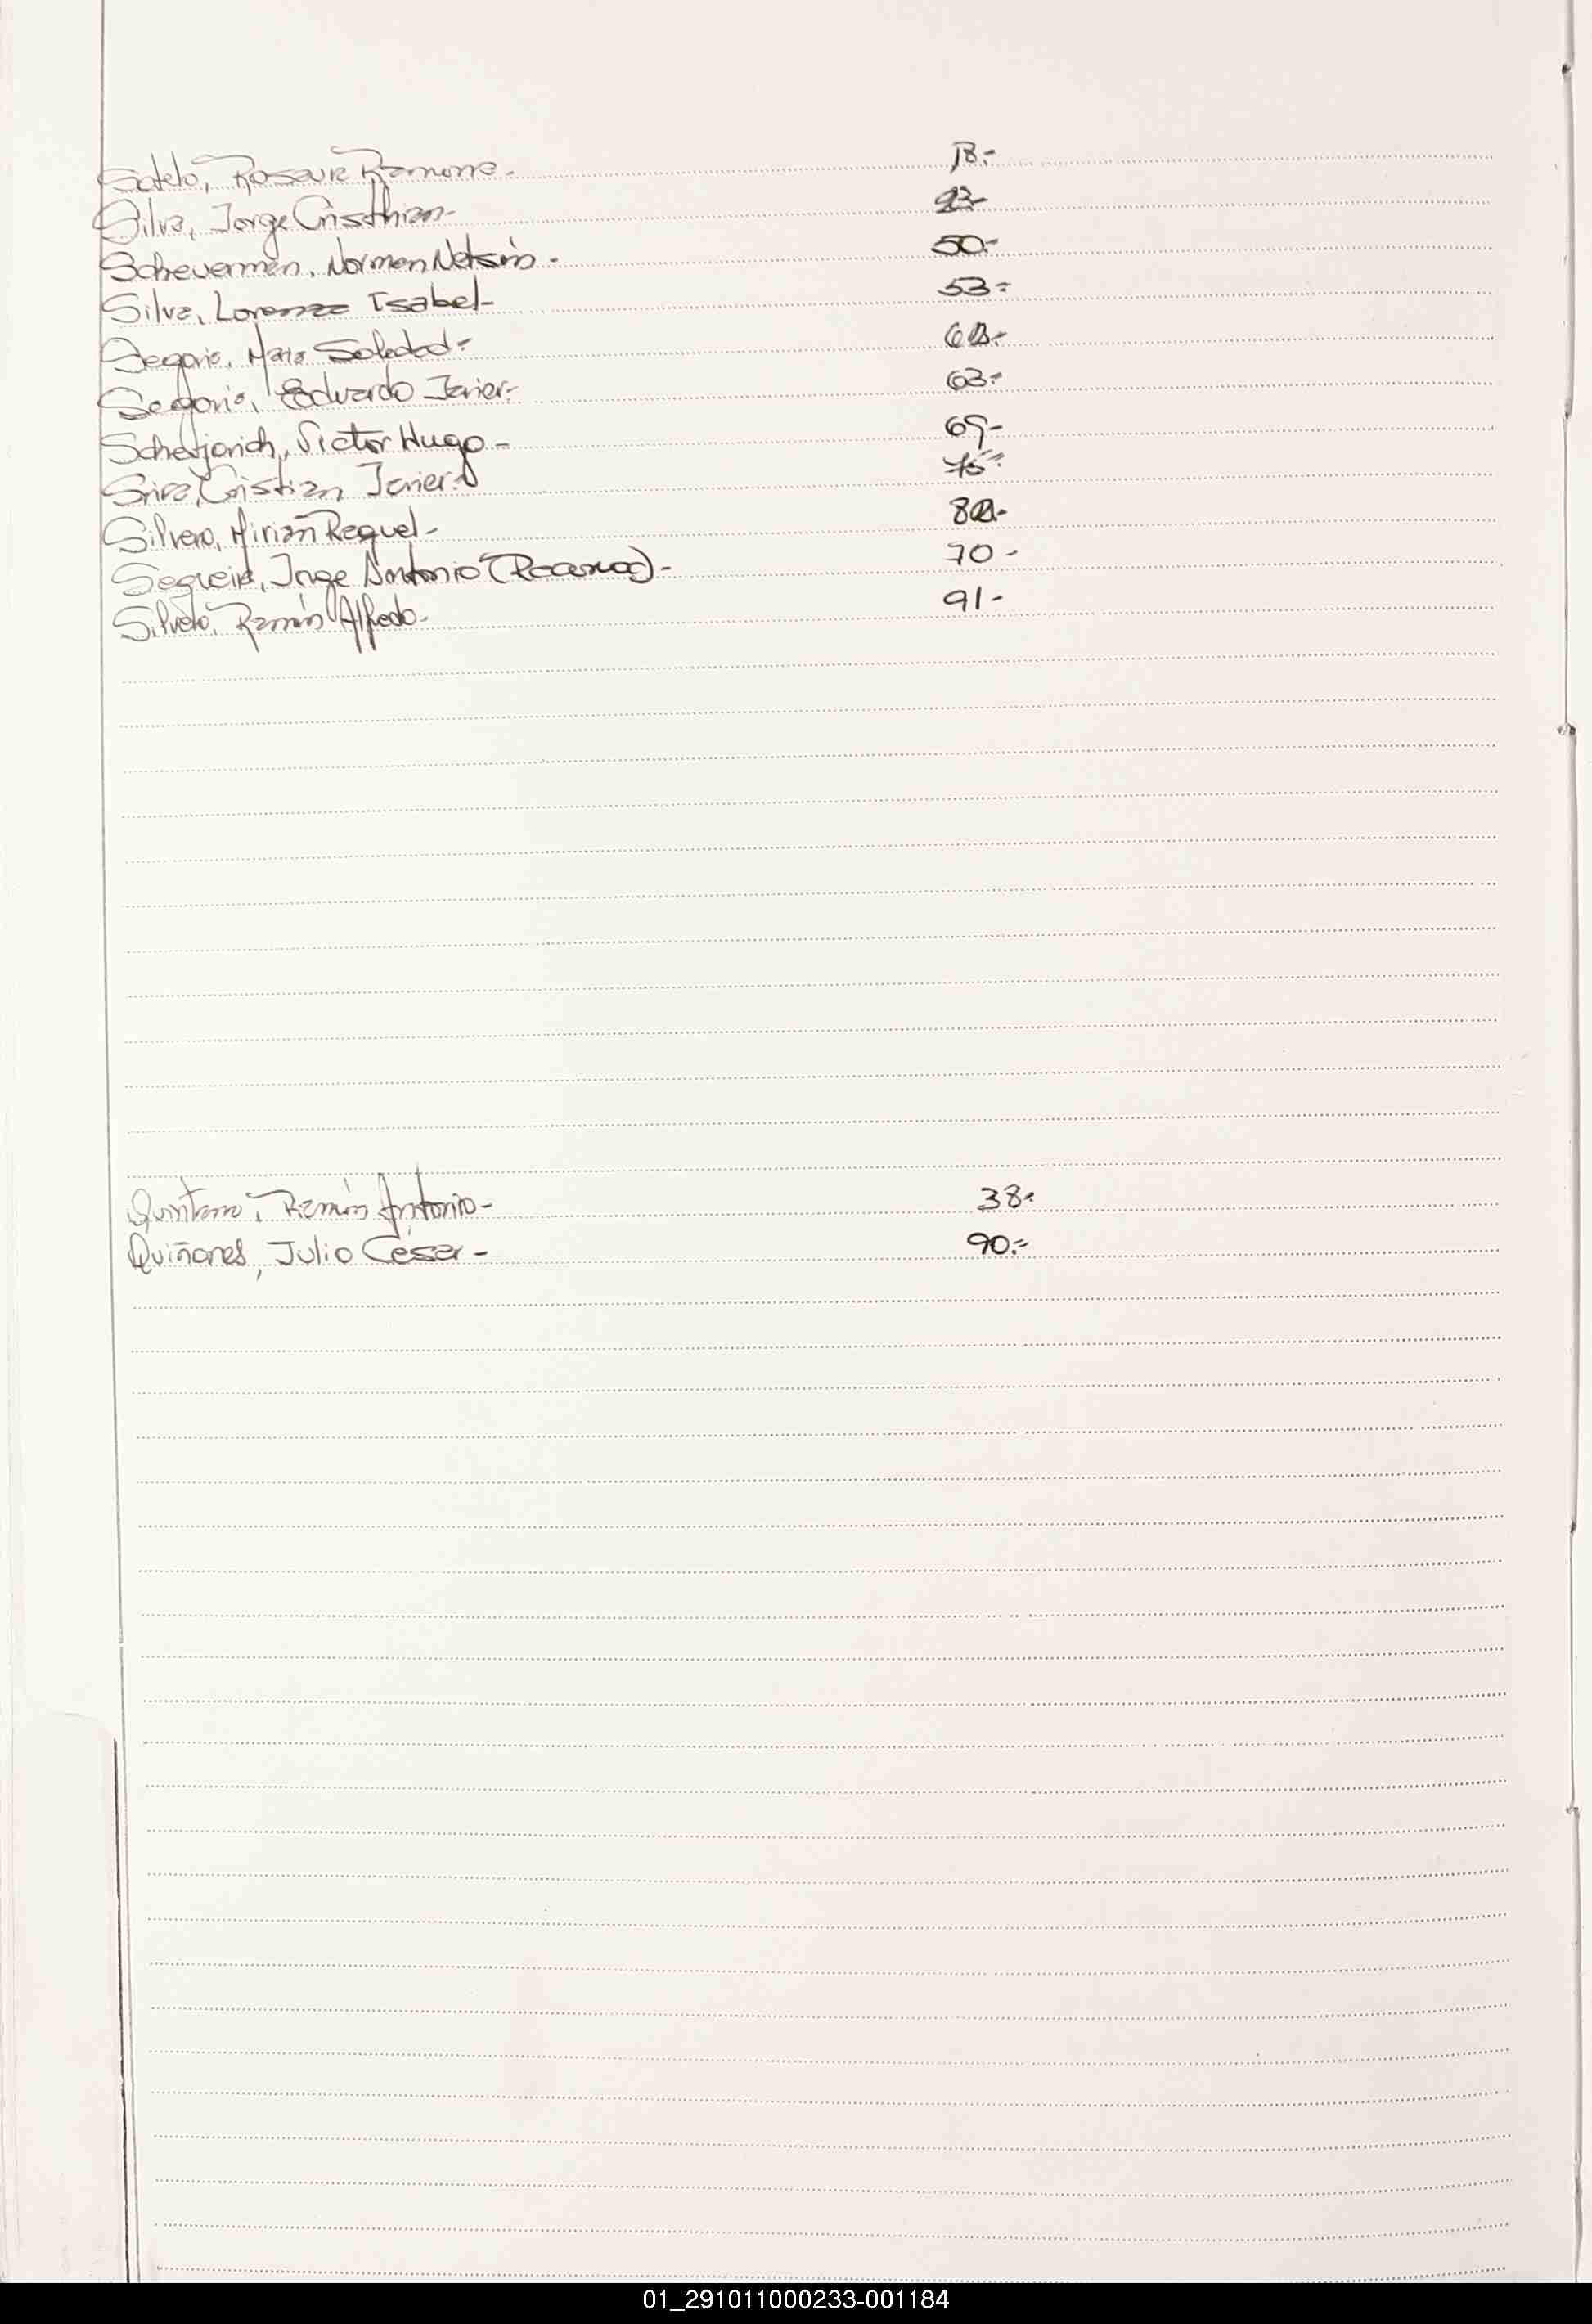 Sotelo, Rosaura Ramona.- 18.-
Silva, Jorge Cristhian- 23-
Scheuerman, Norman Nelson.- 50.-
Silva, Lorenza Isabel- 53.-
Segovia, María Soledad.- 62.-
Segovia, Eduardo Javier.- 63.-
Víctor Hugo.- 69-
Cristian Javier.- 75.-
Silvero, Mirian Raquel- 82.-
Sequeira, Jorge Antonio 70-
Ramón Alfredo- 91-
Ramón Antonio- 38.-
Quiñones, Julio César- 90.-
01_291011000233-001184